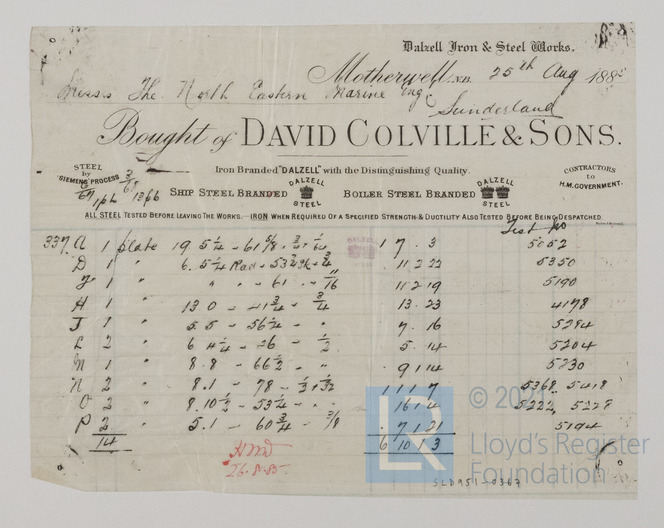 Dalzell Iron & Steel Works.
Motherwell, N.B. 25th Aug 188
Messrs The North Eastern Marine Eng Co
Sunderland
Bought of DAVID COLVILLE & SONS.
STEEL
by
"SIEMENS' PROCESS
Iron Branded "DALZELL" with the Distinguishing Quality.
CONTRACTORS
to
H.M. GOVERNMENT.
SHIP STEEL BRANDED DALZELL STEEL BOILER STEEL BRANDED DALZELL STEEL
ALL STEEL TESTED BEFORE LEAVING THE WORKS. — IRON WHEN REQUIRED OF A SPECIFIED STRENGTH & DUCTILITY ALSO TESTED BEFORE BEING DESPATCHED.
Test No
337. A 1 plate 19. 5¼ - 1 7 . 3 5052
D 1 " 6. 5¼ Rad - 11 2 22 5350
1 " " " - 61 - 11/16 11 2 19 5190
H 1 " 13 0 - 41¾ - ¾ 13 . 23 4178
J 1 " 5.5 - 56¼ - " 7 . 16 5294
L 2 " 6 4½ - 26 - ½ 5 . 14 5204
M 1 " 8.8 - 66½ - " 9 1 14 5230
N 2 " 8.1 - 78 - 1 1 1 7 5368 5418
O 2 " 8.10½ - 53¼ - " 16 1 4 5222, 5228
P 2 " 5.1 - 60¾ - 3/8 7 1 21 5194
14 6 10 1 3
26.8.85
SLD951-0367
© 2021
LR
Lloyd's Register
Foundation